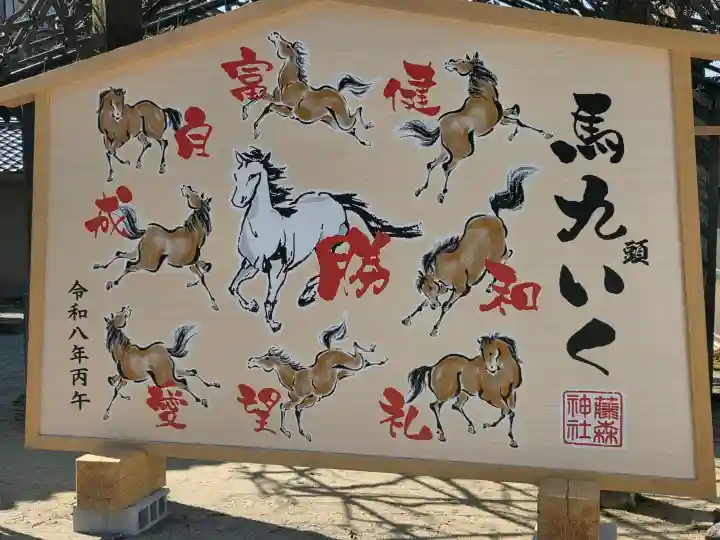 馬九いく
頭
富
健
自
成
勝
和
愛
望
礼
令和八年丙午
藤森
神社